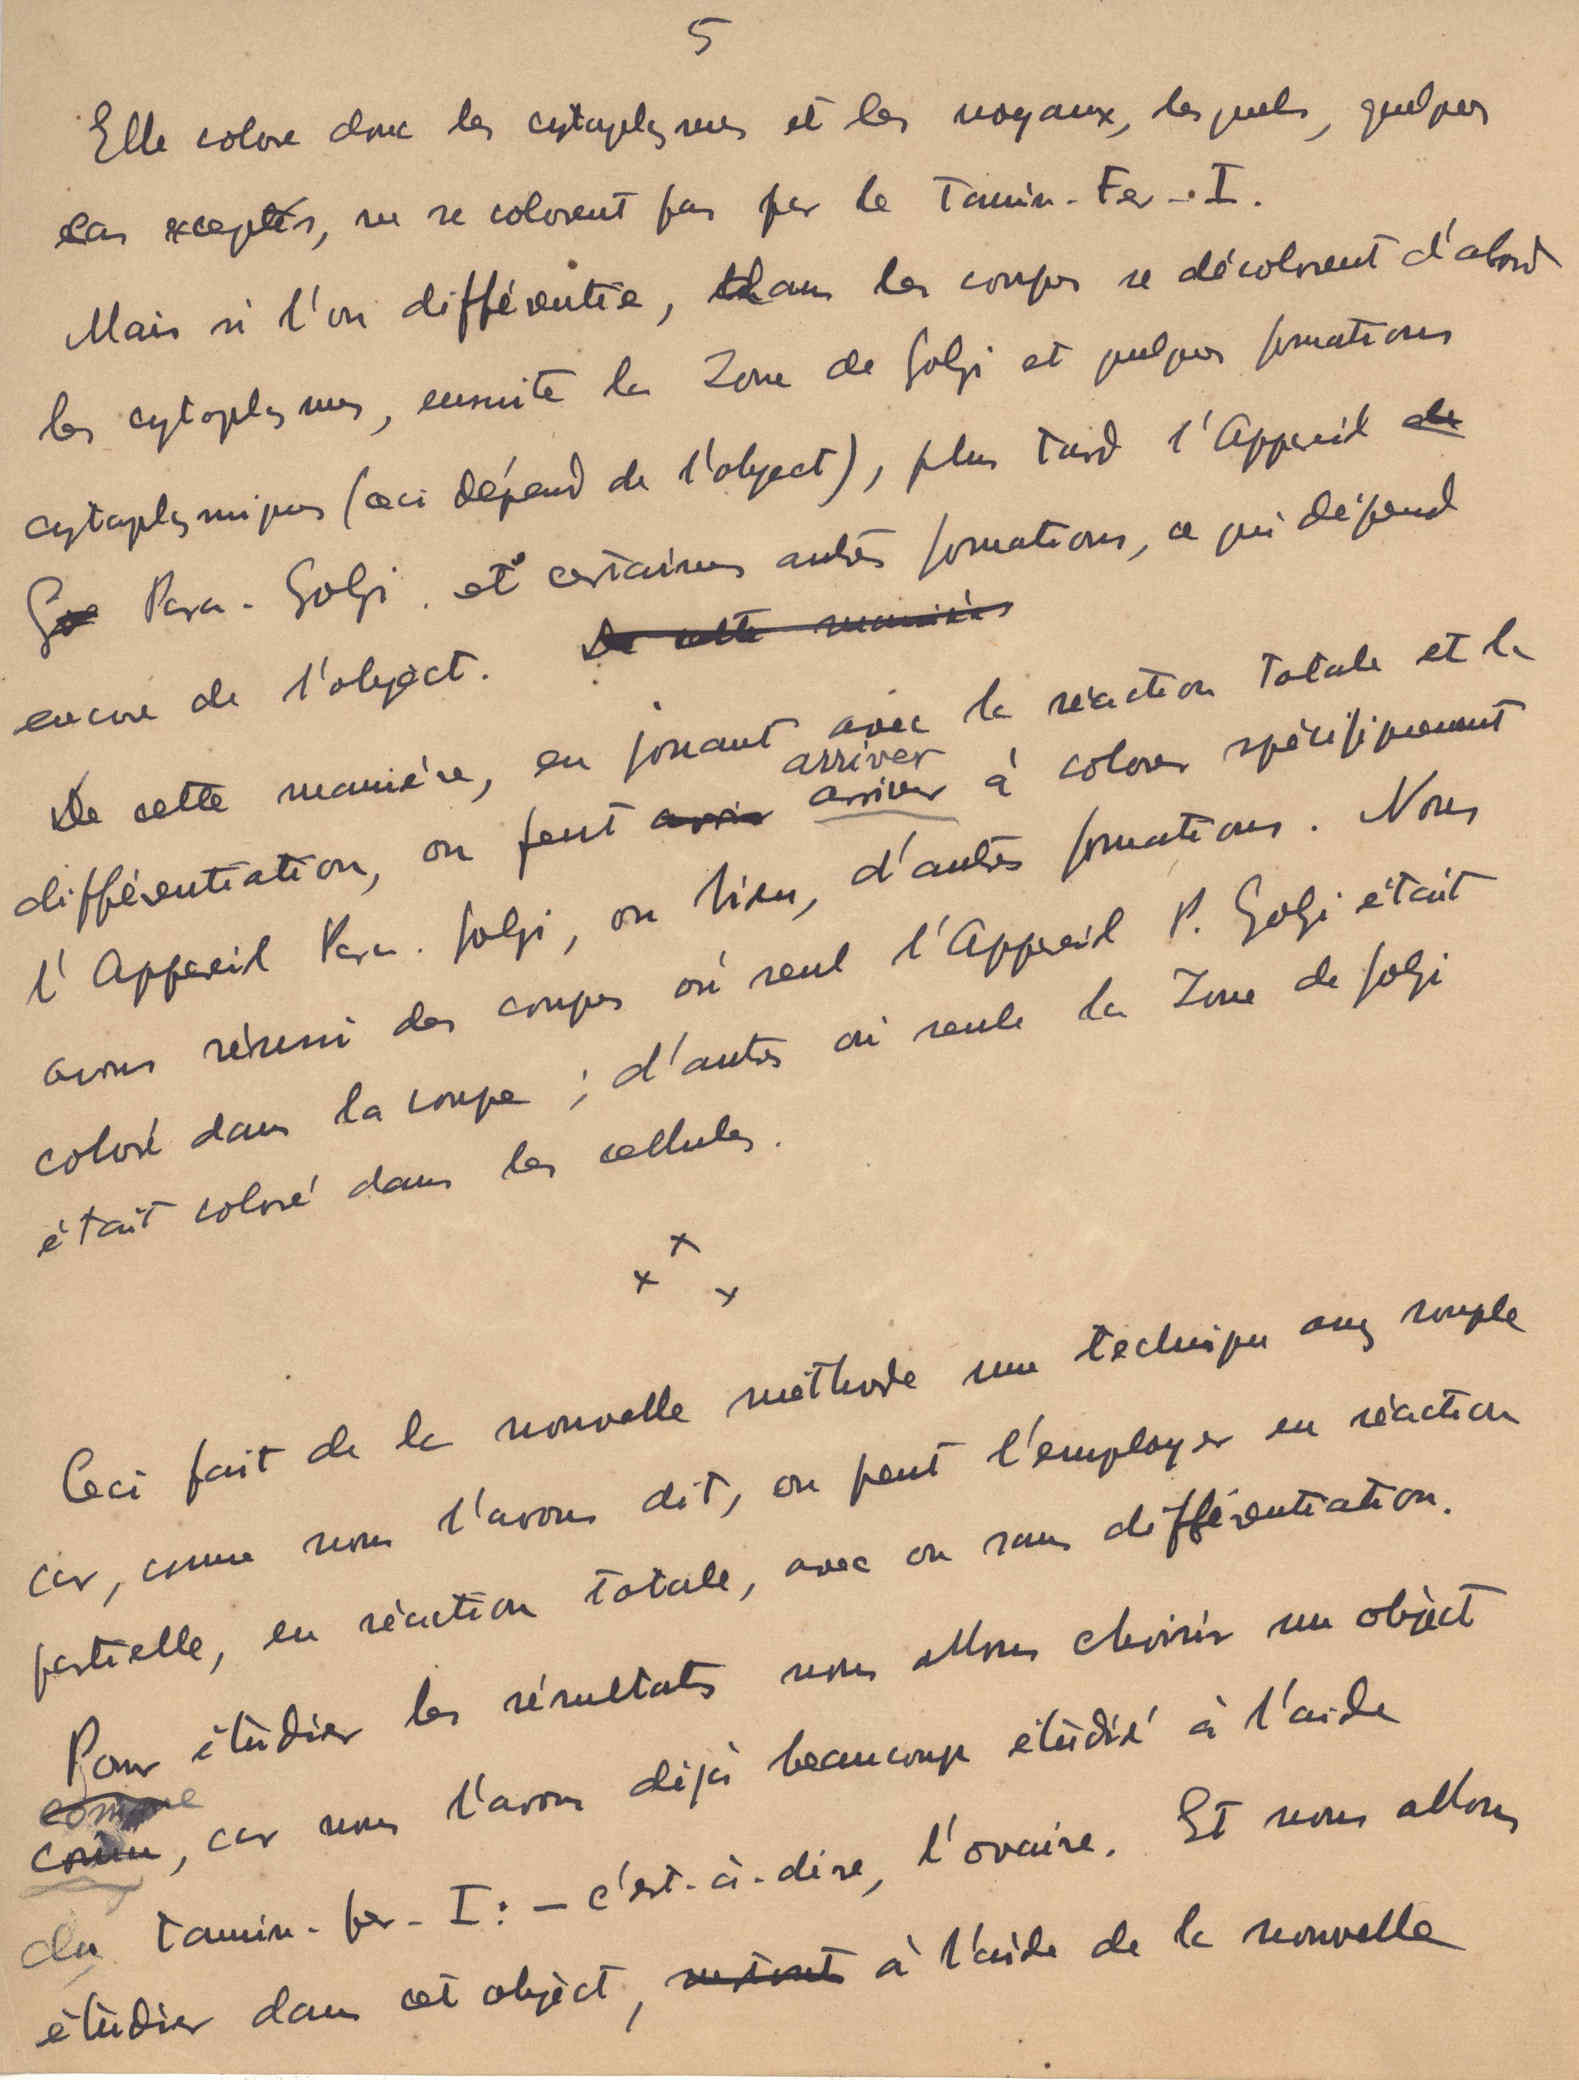 5
Elle colore donc les cytoplasmes et les noyaux, lesquels, quelques
cas exceptés, ne se colorent pas par le Tannin-Fer-I.
Mais si l'on différentie, dans les coupes se décolorent d'abord
les cytoplasmes, ensuite la Zone de Golgi et quelques formations
cytoplasmiques (ceci dépend de l'object), plus tard l'Appareil de
Go Para-Golgi. et certaines autres formations, ce qui dépend
encore de l'object. De cette manière
De cette manière, en jouant avec la réaction totale et la
arriver
différentiation, on peut avoir arriver à colorer spécifiquement
l'Appareil Para-Golgi, ou bien, d'autres formations. Nous
avons réussi des coupes où seul l'Appareil P. Golgi était
coloré dans la coupe ; d'autres où seule la Zone de Golgi
était coloré dans les cellules.
x x x
Ceci fait de la nouvelle méthode une technique assez souple
car, comme nous l'avons dit, on peut l'employer en réaction
partielle, en réaction totale, avec ou sans différentiation.
Pour étudier les résultats nous allons choisir un object
comme
connu, car nous l'avons déjà beaucoup étudié à l'aide
du Tannin-fer-I: – c'est-à-dire, l'ovaire. Et nous allons
étudier dans cet object, à l'aide de la nouvelle